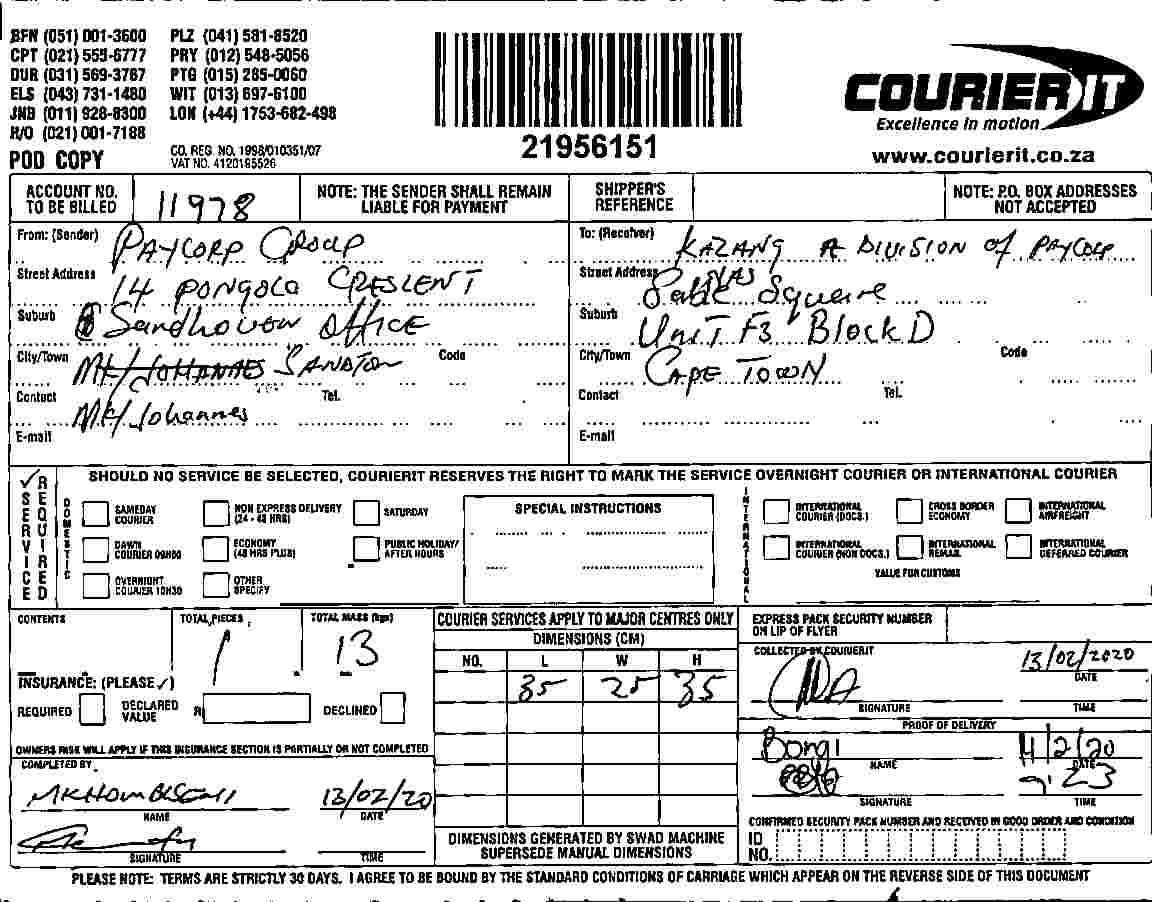 BFN (051) 001-3600 PLZ (041) 581-8520
CPT (021) 555-6777 PRY (012) 548-5056
DUR (031) 569-3767 PTG (015) 285-0060
ELS (043) 731-1480 WIT (013) 697-6100
JNB (011) 928-8300 LON (+44) 1753-682-498
R/O (021) 001-7188
POD COPY
CO. REG. NO. 1998/010351/07
VAT NO. 4120185526
21956151
COURIER IT
Excellence in motion
www.courierit.co.za
ACCOUNT NO. TO BE BILLED 11978
NOTE: THE SENDER SHALL REMAIN LIABLE FOR PAYMENT
SHIPPER'S REFERENCE
NOTE: P.O. BOX ADDRESSES NOT ACCEPTED
From: (Sender) PAYCORP GROUP
Street Address 14 PONGOLA CRESCENT
Suburb Sandhoven OFFICE
City/Town MK/JOHANNES SANDTON Code
Contact MK/Johannes Tel.
E-mail
To: (Receiver) KAZANG A DIVISION of PAYCORP
Street Address Sable Square
Suburb UNIT F3 Block D
City/Town CAPE TOWN Code
Contact Tel.
E-mail
SERVICE REQUIRED
SHOULD NO SERVICE BE SELECTED, COURIERIT RESERVES THE RIGHT TO MARK THE SERVICE OVERNIGHT COURIER OR INTERNATIONAL COURIER
DOMESTIC
SAMEDAY COURIER
NON EXPRESS DELIVERY (24 - 48 HRS)
SATURDAY
DAWN COURIER 09H00
ECONOMY (48 HRS PLUS)
PUBLIC HOLIDAY/ AFTER HOURS
OVERNIGHT COURIER 10H30
OTHER SPECIFY
SPECIAL INSTRUCTIONS
INTERNATIONAL
INTERNATIONAL COURIER (DOCS.)
CROSS BORDER ECONOMY
INTERNATIONAL AIRFREIGHT
INTERNATIONAL COURIER (NON DOCS.)
INTERNATIONAL REMAIL
INTERNATIONAL DEFERRED COURIER
VALUE FOR CUSTOMS
CONTENTS
TOTAL PIECES 1
TOTAL MASS (kgs) 13
INSURANCE: (PLEASE ✓)
REQUIRED DECLARED VALUE R DECLINED
OWNERS RISK WILL APPLY IF THIS INSURANCE SECTION IS PARTIALLY OR NOT COMPLETED
COMPLETED BY
13/02/20
NAME DATE
SIGNATURE TIME
COURIER SERVICES APPLY TO MAJOR CENTRES ONLY
DIMENSIONS (CM)
NO. L W H
35 25 35
DIMENSIONS GENERATED BY SWAD MACHINE
SUPERSEDE MANUAL DIMENSIONS
EXPRESS PACK SECURITY NUMBER ON LIP OF FLYER
COLLECTED BY COURIERIT
13/02/2020
DATE
SIGNATURE TIME
PROOF OF DELIVERY
Bongi
NAME DATE
9:23
SIGNATURE TIME
CONFIRMED SECURITY PACK NUMBER AND RECEIVED IN GOOD ORDER AND CONDITION
ID NO.
PLEASE NOTE: TERMS ARE STRICTLY 30 DAYS. I AGREE TO BE BOUND BY THE STANDARD CONDITIONS OF CARRIAGE WHICH APPEAR ON THE REVERSE SIDE OF THIS DOCUMENT